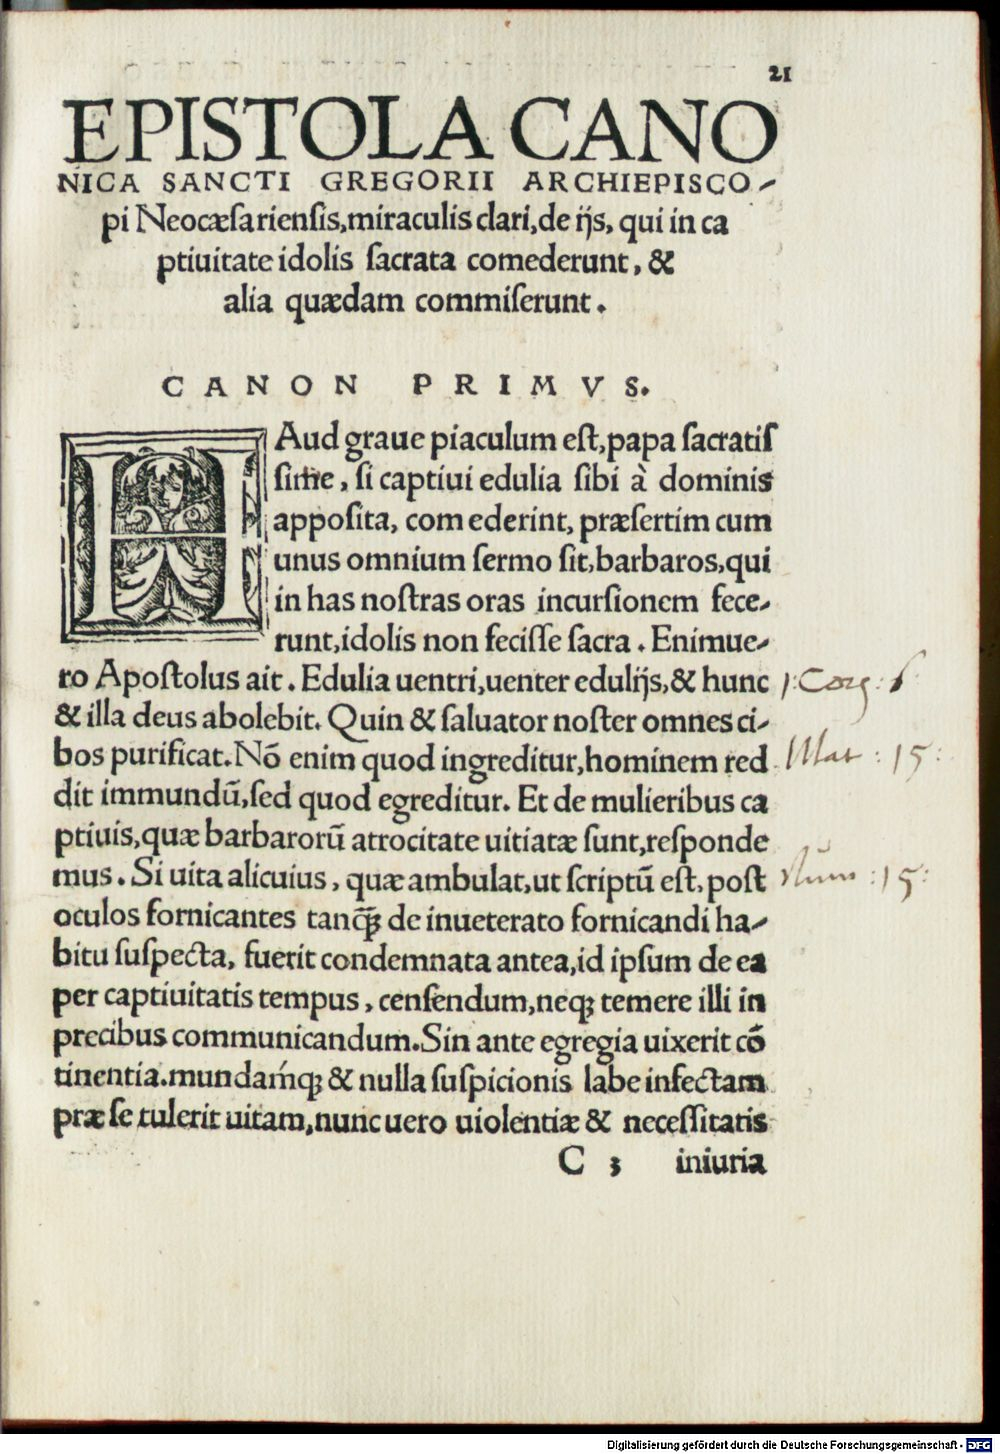 21
EPISTOLA CANO
NICA SANCTI GREGORII ARCHIEPISCO-
pi Neocæsariensis, miraculis clari, de ijs, qui in ca
ptiuitate idolis sacrata comederunt, &
alia quædam commiserunt.
CANON PRIMVS.
HAud graue piaculum est, papa sacratis
sime, si captiui edulia sibi à dominis
apposita, com ederint, præsertim cum
unus omnium sermo sit, barbaros, qui
in has nostras oras incursionem fece-
runt, idolis non fecisse sacra. Enimue-
ro Apostolus ait. Edulia uentri, uenter edulijs, & hunc 1. Cor: 6
& illa deus abolebit. Quin & saluator noster omnes ci-
bos purificat. Nō enim quod ingreditur, hominem red Mat: 15:
dit immundū, sed quod egreditur. Et de mulieribus ca
ptiuis, quæ barbarorū atrocitate uitiatæ sunt, responde
mus. Si uita alicuius, quæ ambulat, ut scriptū est, post Num: 15:
oculos fornicantes tanq̄ꝫ de inueterato fornicandi ha-
bitu suspecta, fuerit condemnata antea, id ipsum de ea
per captiuitatis tempus, censendum, neqꝫ temere illi in
precibus communicandum. Sin ante egregia uixerit cō
tinentia. mundaḿqꝫ & nulla suspicionis labe infectam
præ se tulerit uitam, nunc uero uiolentiæ & necessitatis
C 3 iniuria
Digitalisierung gefördert durch die Deutsche Forschungsgemeinschaft - DFG